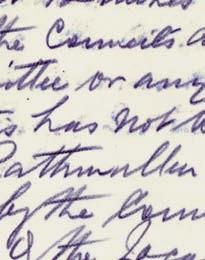 the Convicts
ittee or any
s has not
Rathmullen
by the Com
the Loca